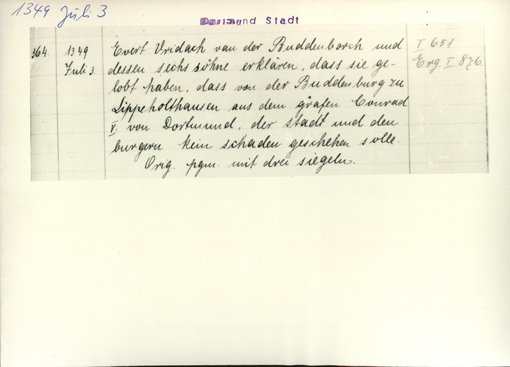 1349 Juli 3
Dortmund Stadt
364. 1349 Juli 3.
Evert Vridach van der Buddenborch und
dessen sechs söhne erklären, dass sie ge-
lobt haben, dass von der Buddenburg zu
Lippeholthausen aus dem grafen Conrad
V. von Dortmund, der stadt und den
burgern kein schaden geschehen solle.
Orig. pgm. mit drei siegeln.
I 651
Erg I 876